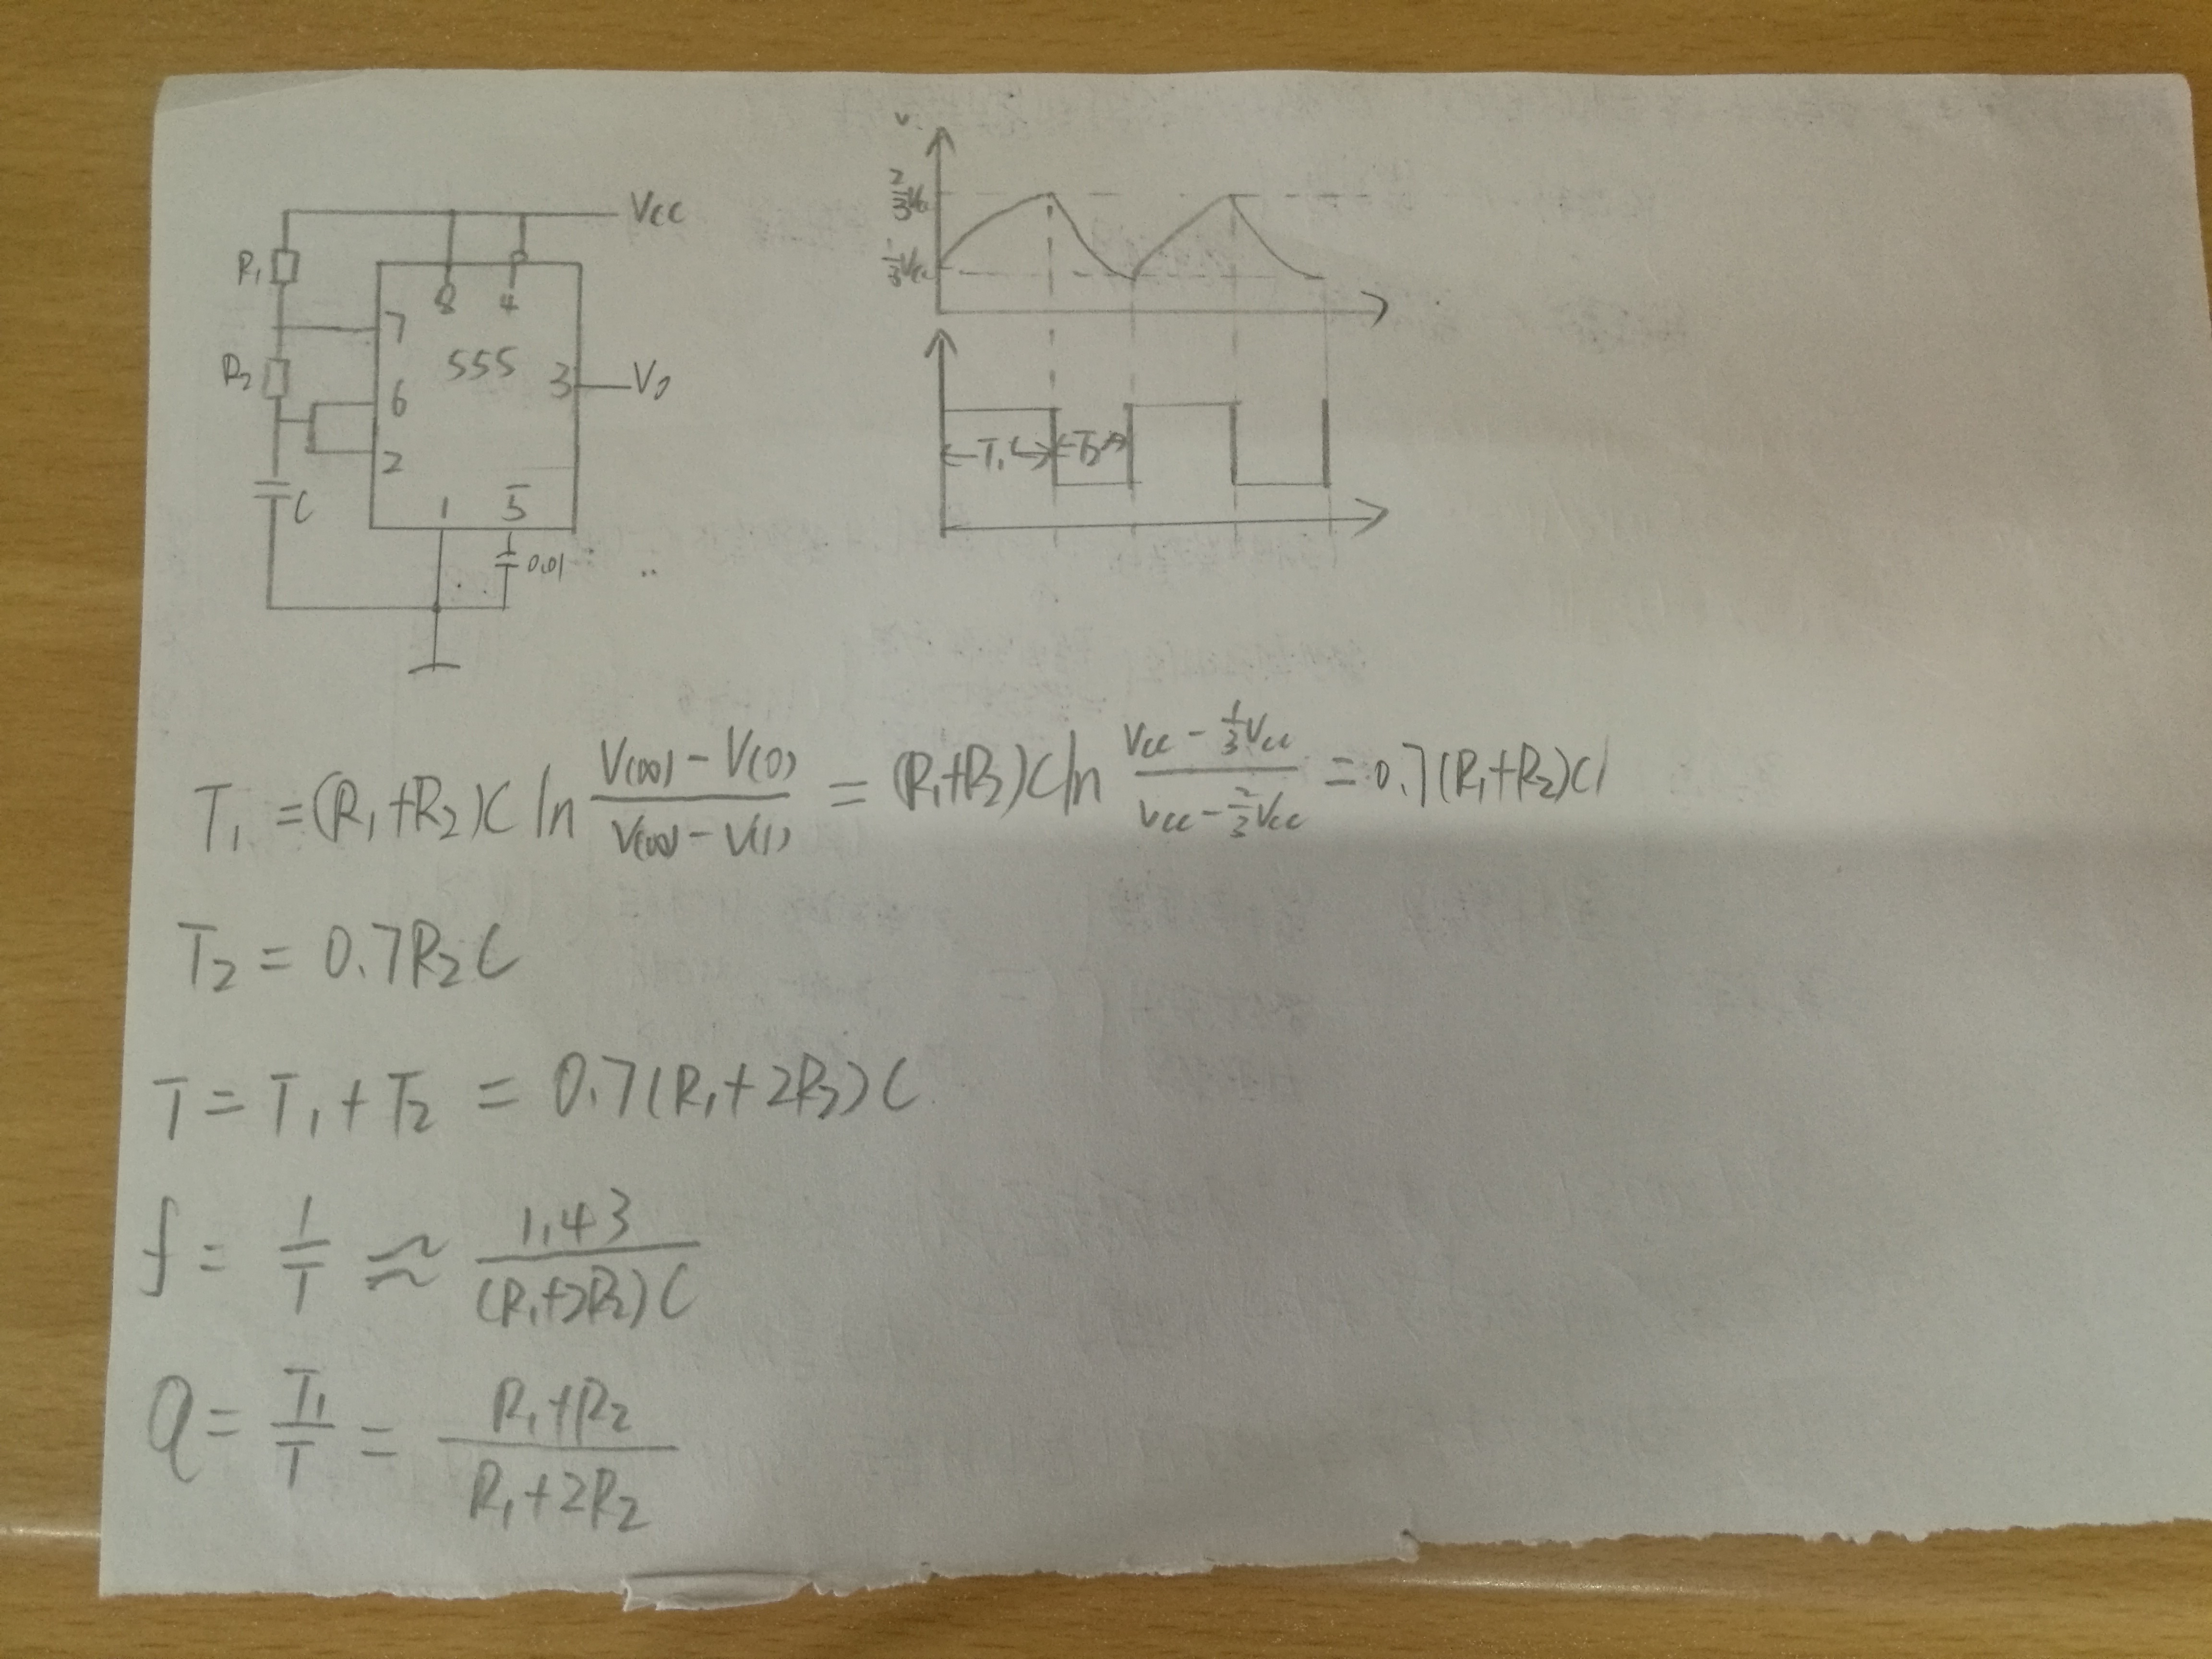 Vcc
R₁
8 4
7
R₂
555
3
V₀
6
2
C
1 5
0.01
v
2/3Vcc
1/3Vcc
T₁
T₂
T₁ = (R₁+R₂)C ln (V(∞) - V(0))/(V(∞) - V(1)) = (R₁+R₂)C ln (Vcc - 1/3Vcc)/(Vcc - 2/3Vcc) = 0.7(R₁+R₂)C
T₂ = 0.7R₂C
T = T₁ + T₂ = 0.7(R₁+2R₂)C
f = 1/T ≈ 1.43/((R₁+2R₂)C)
q = T₁/T = (R₁+R₂)/(R₁+2R₂)